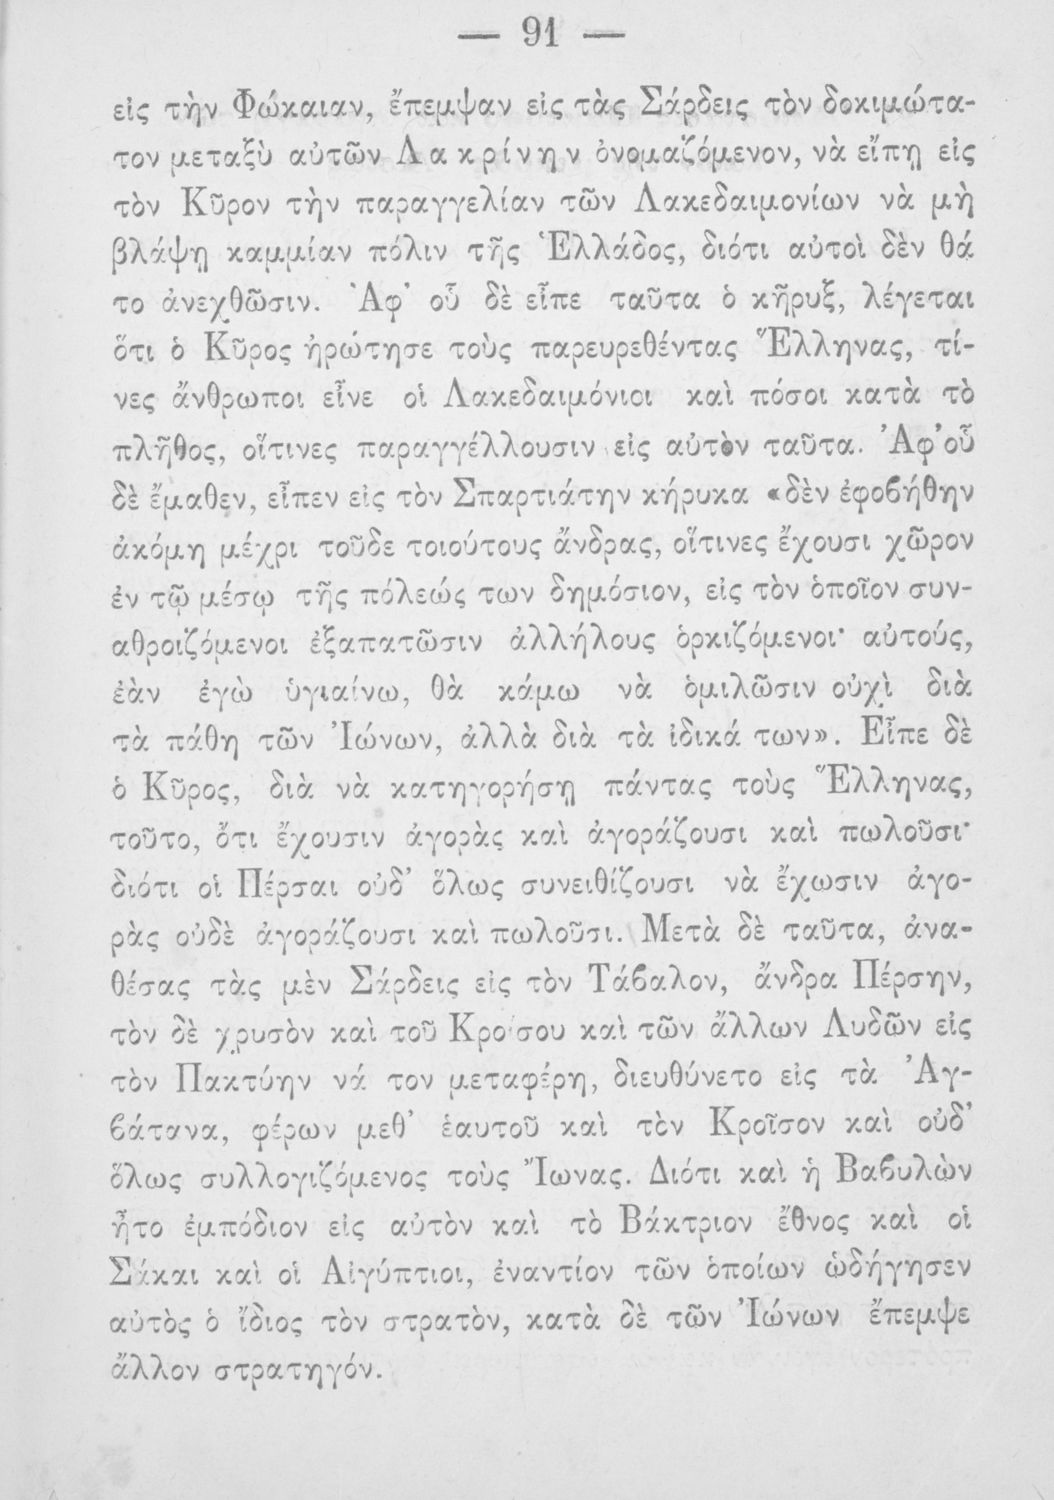 — 91 —
εἰς τὴν Φώκαιαν, ἔπεμψαν εἰς τὰς Σάρδεις τὸν δοκιμώτα-
τον μεταξὺ αὐτῶν Λακρίνην ὀνομαζόμενον, νὰ εἴπῃ εἰς
τὸν Κῦρον τὴν παραγγελίαν τῶν Λακεδαιμονίων νὰ μὴ
βλάψῃ καμμίαν πόλιν τῆς Ἑλλάδος, διότι αὐτοὶ δὲν θά
το ἀνεχθῶσιν. Ἀφ' οὗ δὲ εἶπε ταῦτα ὁ κῆρυξ, λέγεται
ὅτι ὁ Κῦρος ἠρώτησε τοὺς παρευρεθέντας Ἕλληνας, τί-
νες ἄνθρωποι εἶνε οἱ Λακεδαιμόνιοι καὶ πόσοι κατὰ τὸ
πλῆθος, οἵτινες παραγγέλλουσιν εἰς αὐτὸν ταῦτα. Ἀφ' οὗ
δὲ ἔμαθεν, εἶπεν εἰς τὸν Σπαρτιάτην κήρυκα «δὲν ἐφοβήθην
ἀκόμη μέχρι τοῦδε τοιούτους ἄνδρας, οἵτινες ἔχουσι χῶρον
ἐν τῷ μέσῳ τῆς πόλεώς των δημόσιον, εἰς τὸν ὁποῖον συν-
αθροιζόμενοι ἐξαπατῶσιν ἀλλήλους ὁρκιζόμενοι· αὐτούς,
ἐὰν ἐγὼ ὑγιαίνω, θὰ κάμω νὰ ὁμιλῶσιν οὐχὶ διὰ
τὰ πάθη τῶν Ἰώνων, ἀλλὰ διὰ τὰ ἰδικά των». Εἶπε δὲ
ὁ Κῦρος, διὰ νὰ κατηγορήσῃ πάντας τοὺς Ἕλληνας,
τοῦτο, ὅτι ἔχουσιν ἀγορὰς καὶ ἀγοράζουσι καὶ πωλοῦσι·
διότι οἱ Πέρσαι οὐδ' ὅλως συνειθίζουσι νὰ ἔχωσιν ἀγο-
ρὰς οὐδὲ ἀγοράζουσι καὶ πωλοῦσι. Μετὰ δὲ ταῦτα, ἀνα-
θέσας τὰς μὲν Σάρδεις εἰς τὸν Τάβαλον, ἄνδρα Πέρσην,
τὸν δὲ χρυσὸν καὶ τοῦ Κροίσου καὶ τῶν ἄλλων Λυδῶν εἰς
τὸν Πακτύην νά τον μεταφέρῃ, διευθύνετο εἰς τὰ Ἀγ-
βάτανα, φέρων μεθ' ἑαυτοῦ καὶ τὸν Κροῖσον καὶ οὐδ'
ὅλως συλλογιζόμενος τοὺς Ἴωνας. Διότι καὶ ἡ Βαβυλὼν
ἦτο ἐμπόδιον εἰς αὐτὸν καὶ τὸ Βάκτριον ἔθνος καὶ οἱ
Σάκαι καὶ οἱ Αἰγύπτιοι, ἐναντίον τῶν ὁποίων ὡδήγησεν
αὐτὸς ὁ ἴδιος τὸν στρατὸν, κατὰ δὲ τῶν Ἰώνων ἔπεμψε
ἄλλον στρατηγόν.